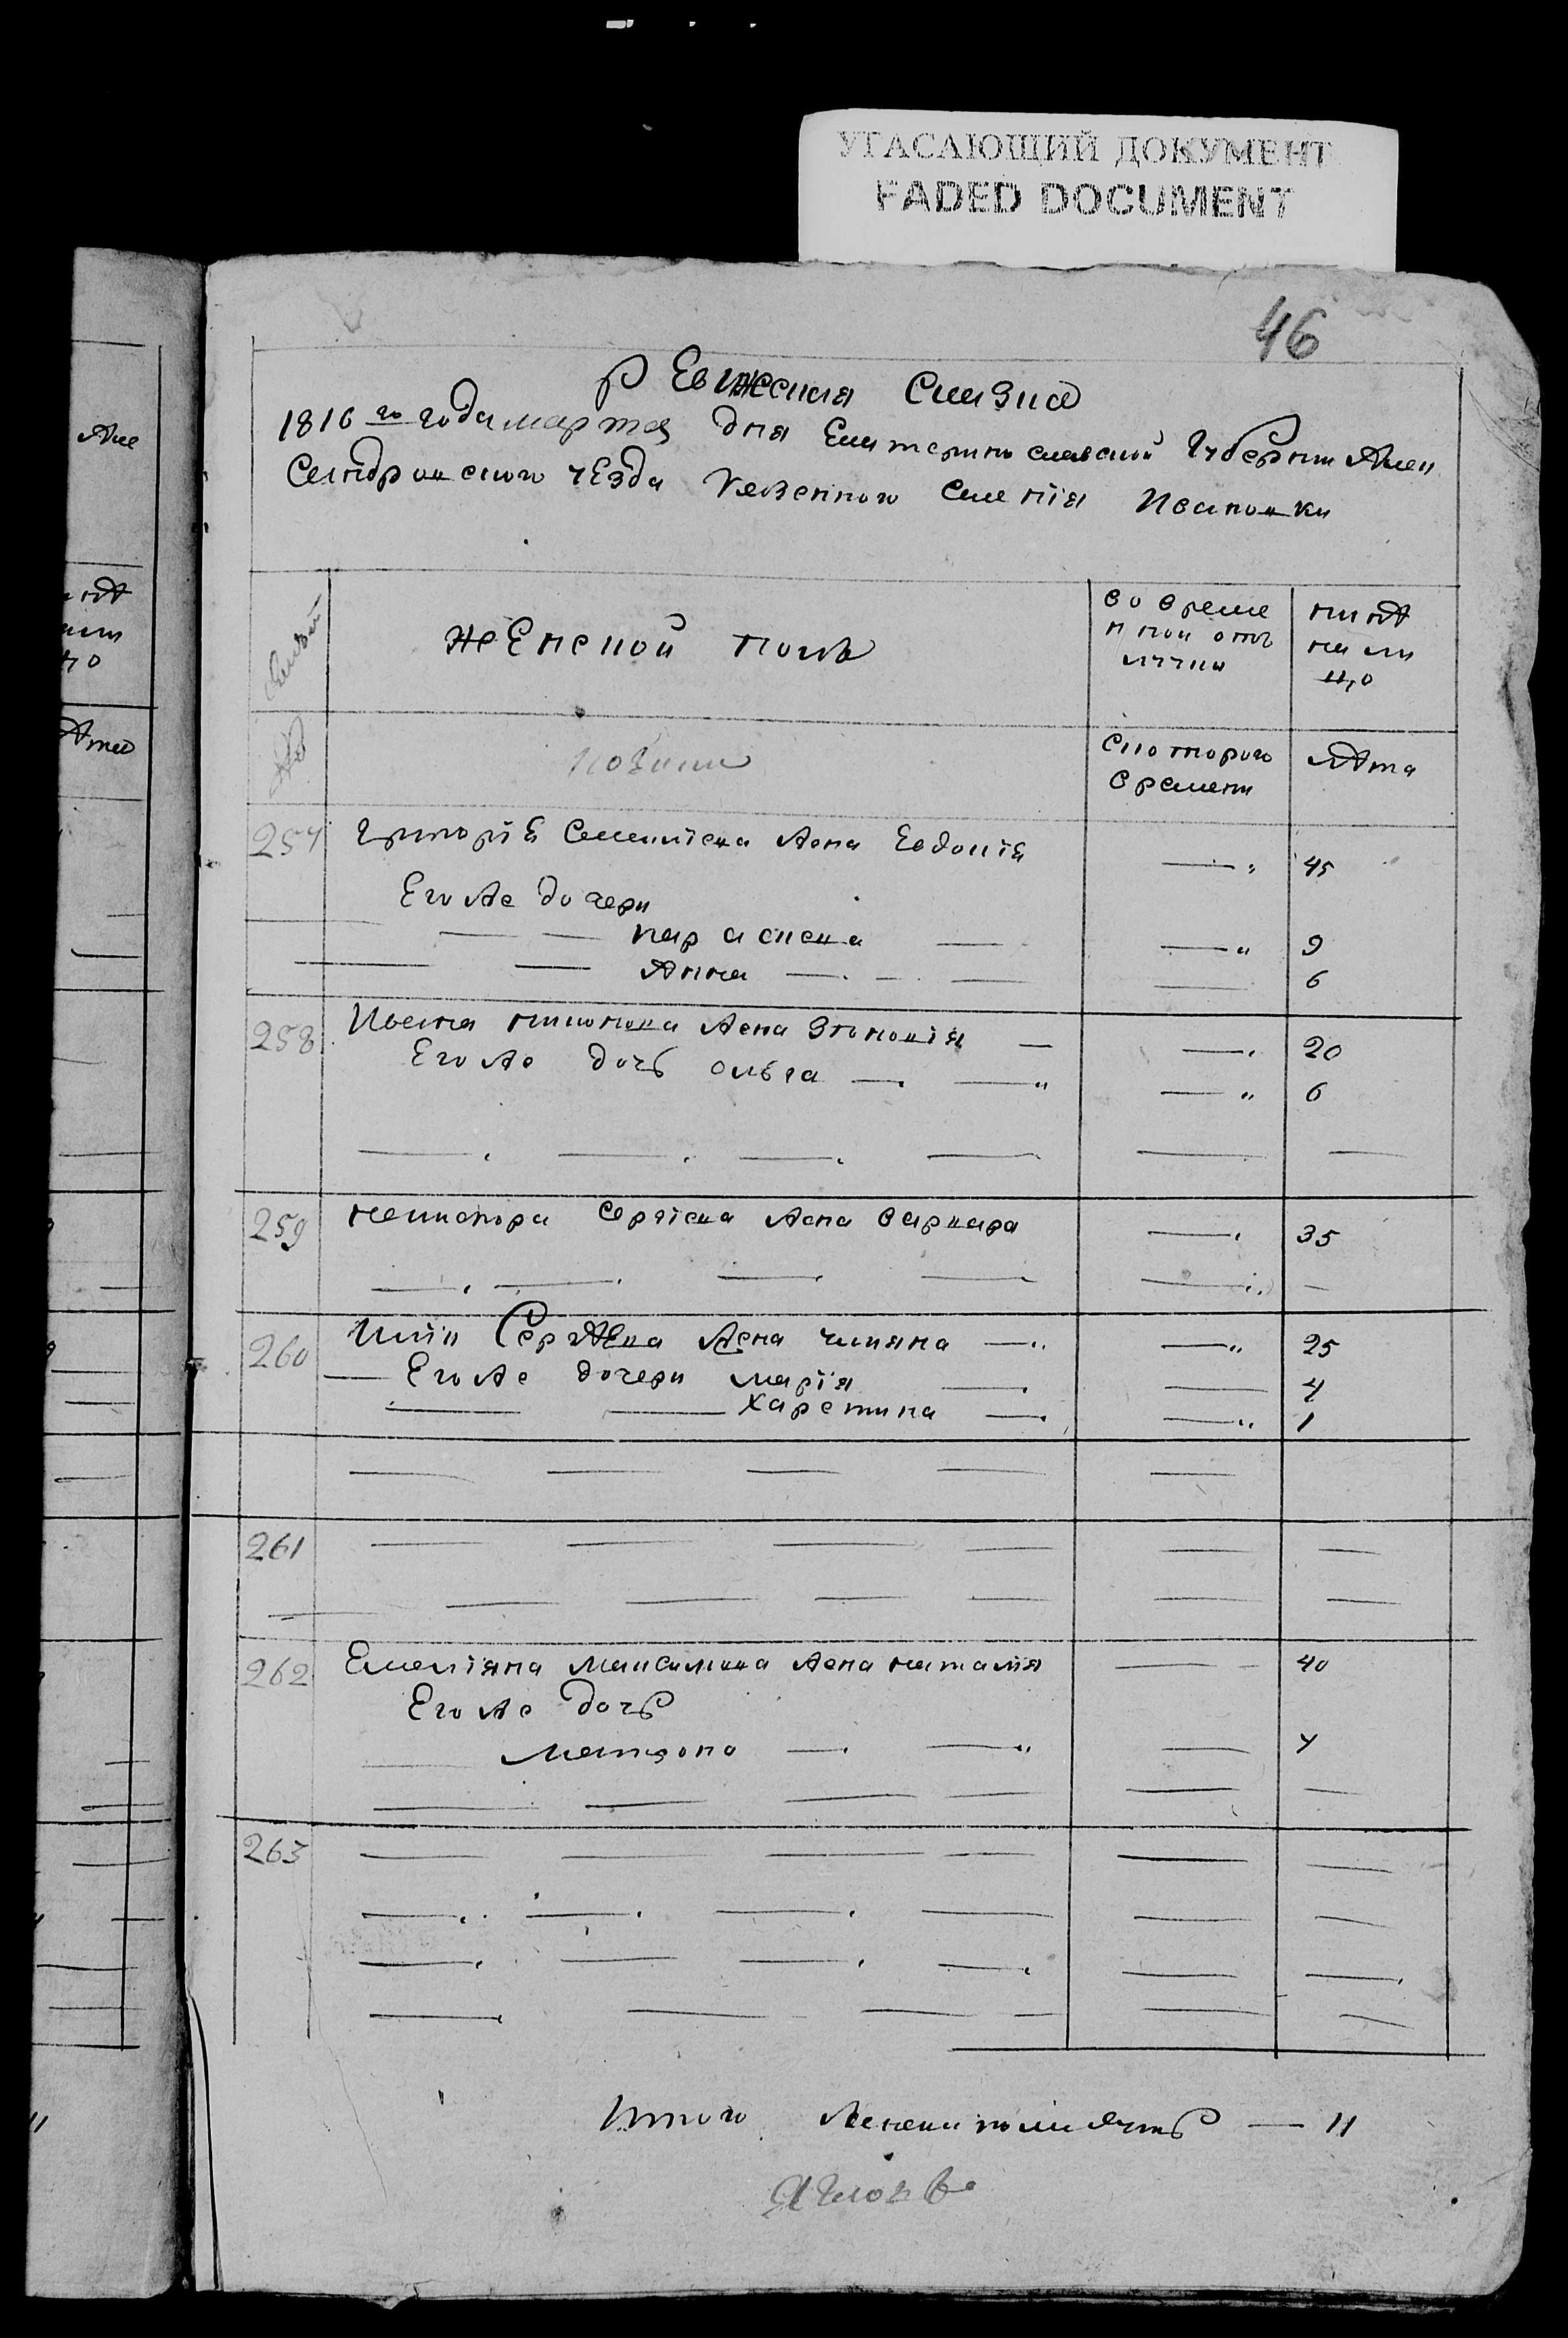 УГАСАЮЩИЙ ДОКУМЕНТ
FADED DOCUMENT
46
Ревижская Сказка
1816 го года марта дня Екатеринославской Губернии Алек
Сандровского уезда казенного селения Ивановки
семьи
женской полъ
во време
нной отъ
лучки
нинѣ
на ли
цо
№
с которого
времени
лѣта
257 Григория Семенова жена Евдокия 45
Его же дочери
параскева 9
Анна 6
258 Ивана жена Зиновия 20
Его же дочь ольга 6
259 Сергиева жена варвара 35
260 Илии Сергѣева жена 25
Его же дочери мария 4
Харетина 1
261
262 Емелияна Максимова жена наталия 40
Его же дочь
матрона 7
263
Итого женска пола душъ — 11
Але
нѣ
ли
цо
ѣта
11